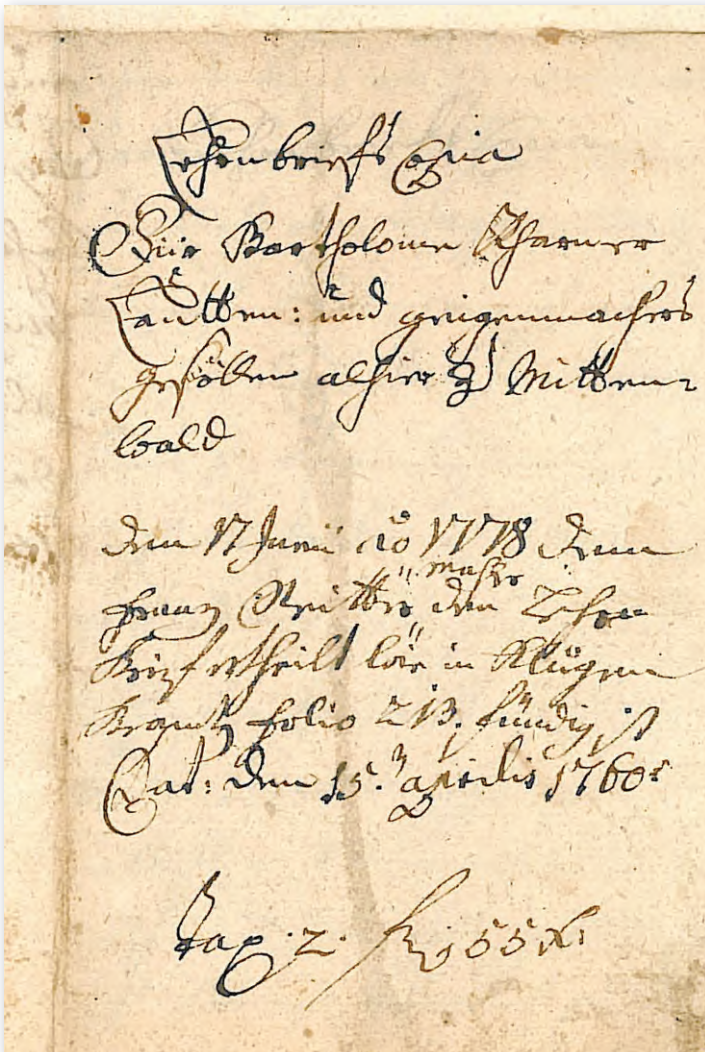 Lehrnbriefs Copia
Für Bartholome Kharner
Lautten: und geigenmachers
gesöllen alhier zu Mitten=
wald
dem 17 Junii ao 1778 dem
Frantz Reitter den Lehrn
brief ertheilt wie in
folio 213. fündig ist
Dat: dem 15. aprilis 1760
Tax. 2. f 55 kr